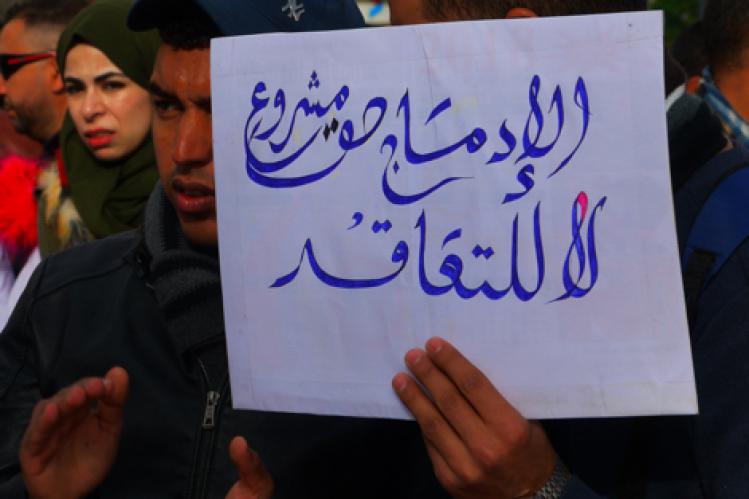 الإدماج حق مشروع
لا للتعاقد